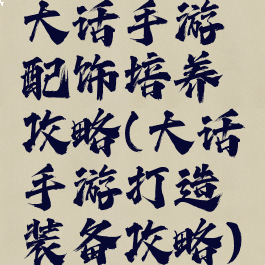 大话手游
配饰培养
攻略(大话
手游打造
装备攻略)